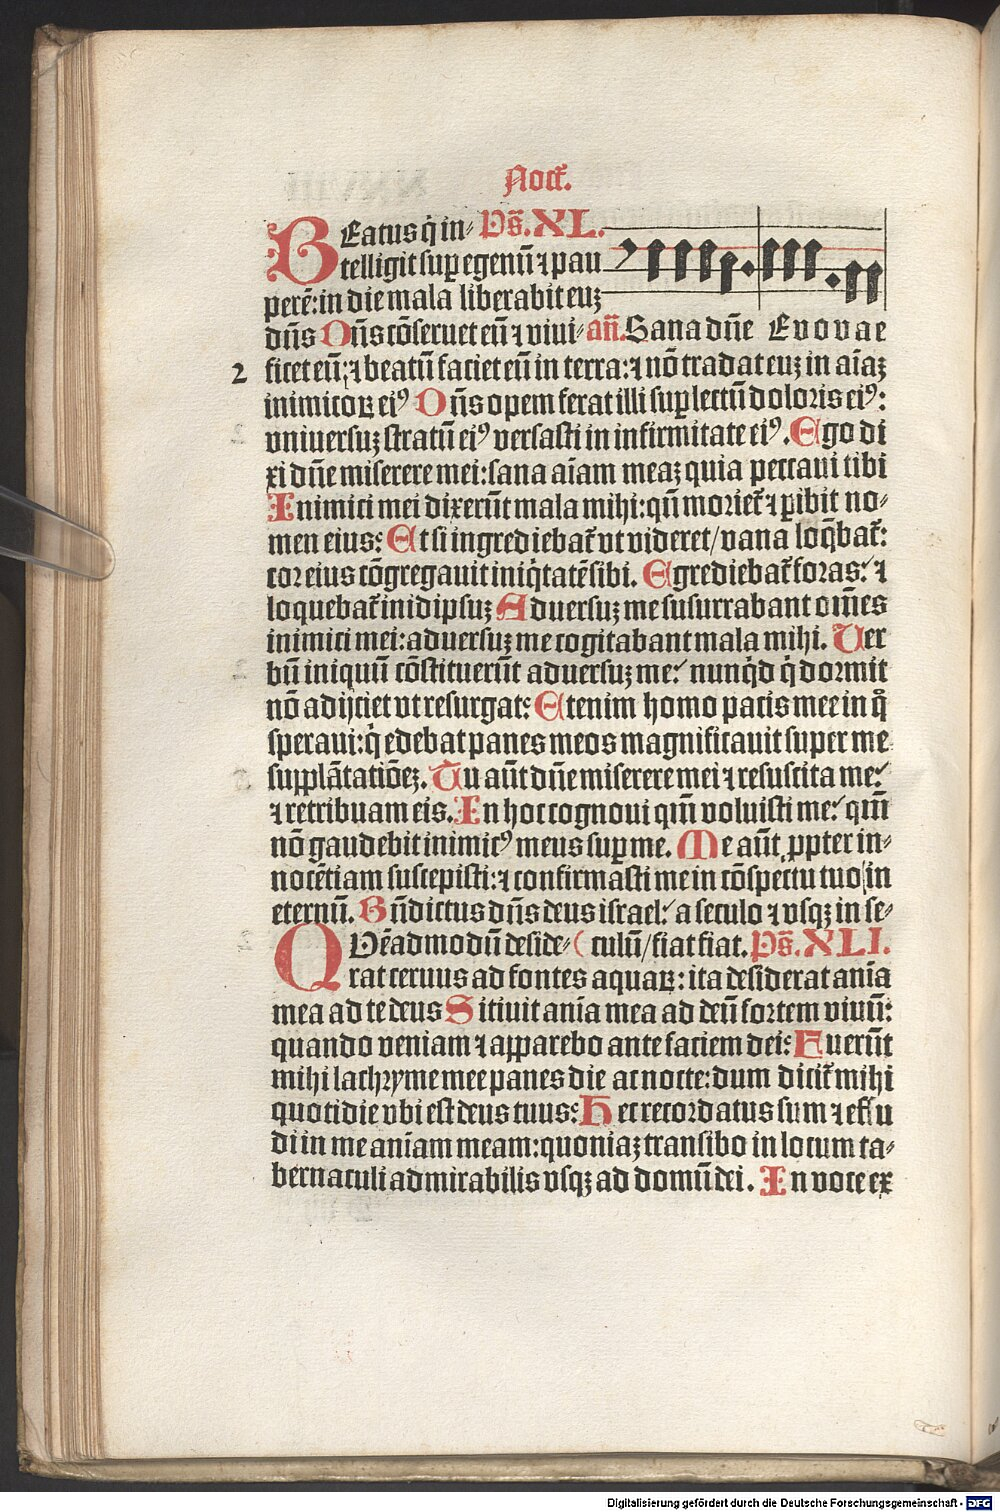 Noct̄.
BEatus q̄ in⸗ Ps̄. XL.
telligit sup̲ egenū ⁊ pau
perē: in die mala liberabit euꝫ
dn̄s Dn̄s cōseruet eū ⁊ viui⸗ an̄. Sana dn̄e Evovae
2 ficet eū: ⁊ beatū faciet eū in terra: ⁊ nō tradat euꝫ in aīaꝫ
inimicoꝝ eiꝰ Dn̄s opem ferat illi sup̲ lectū doloris eiꝰ:
vniuersuꝫ stratū eiꝰ versasti in infirmitate eiꝰ. Ego di
xi dn̄e miserere mei: sana aīam meaꝫ quia peccaui tibi
Inimici mei dixerūt mala mihi: qn̄ moriet᷑ ⁊ ꝑibit no⸗
men eius: Et si ingrediebat᷑ vt videret / vana loq̄bat᷑:
cor eius cōgregauit iniq̇tatē sibi. Egrediebat᷑ foras: ⁊
loquebat᷑ in idipsuꝫ Aduersuꝫ me susurrabant om̄es
inimici mei: aduersuꝫ me cogitabant mala mihi. Uer
bū iniquū cōstituerūt aduersuꝫ me: nunq̇d q̇ dormit
nō adijciet vt resurgat: Etenim homo pacis mee in q̊
speraui: q̇ edebat panes meos magnificauit super me
supplātatiōeꝫ. Tu aūt dn̄e miserere mei ⁊ resuscita me:
⁊ retribuam eis. In hoc cognoui qm̄ voluisti me: qm̄
nō gaudebit inimicꝰ meus sup̲ me. Me aūt ꝓpter in⸗
nocētiam suscepisti: ⁊ confirmasti me in cōspectu tuo in
eternū. Bn̄dictus dn̄s deus israel: a seculo ⁊ vsqꝫ in se⸗
QUēadmodū deside⸗ ( culū / fiat fiat. Ps̄. XLI.
rat ceruus ad fontes aquaꝝ: ita desiderat anīa
mea ad te deus Sitiuit anīa mea ad deū fortem viuū:
quando veniam ⁊ apparebo ante faciem dei: Fuerūt
mihi lachryme mee panes die ac nocte: dum dicit᷑ mihi
quotidie vbi est deus tuus: Hec recordatus sum ⁊ effu
di in me anīam meam: quoniaꝫ transibo in locum ta⸗
bernaculi admirabilis vsqꝫ ad domū dei. In voce ex
Digitalisierung gefördert durch die Deutsche Forschungsgemeinschaft - DFG